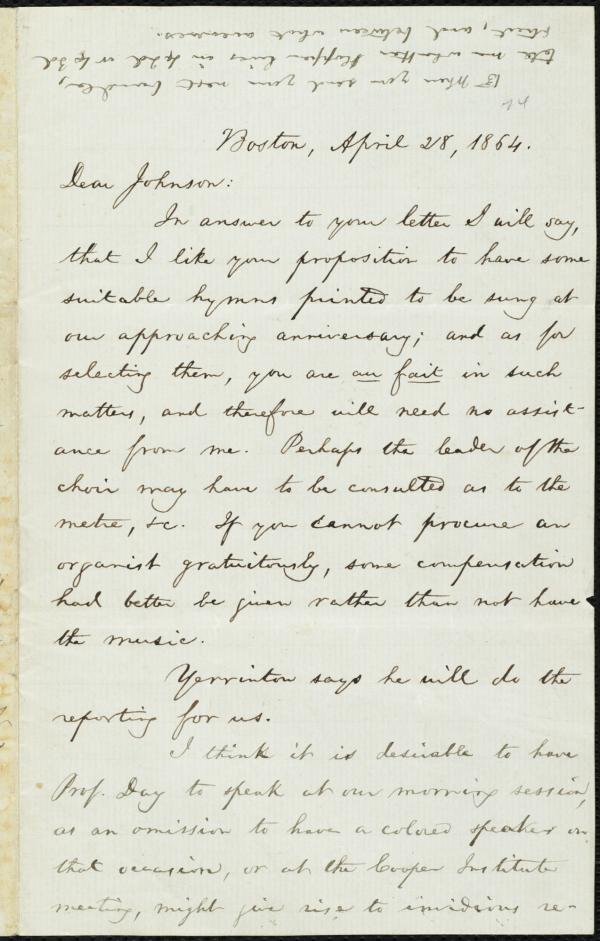 ☞ When you send your next bundle,
tell me whether Hopper lives in 42d or 43d
street, and between what avenues.
Boston, April 28, 1864.
Dear Johnson:
In answer to your letter I will say,
that I like your proposition to have some
suitable hymns printed to be sung at
our approaching anniversary; and as for
selecting them, you are au fait in such
matters, and therefore will need no assist-
ance from me. Perhaps the leader of the
choir may have to be consulted as to the
metre, &c. If you cannot procure an
organist gratuitously, some compensation
had better be given rather than not have
the music.
Yerrinton says he will do the
reporting for us.
I think it is desirable to have
Prof. Day to speak at our morning session,
as an omission to have a colored speaker on
that occasion, or at the Cooper Institute
meeting, might give rise to invidious re-